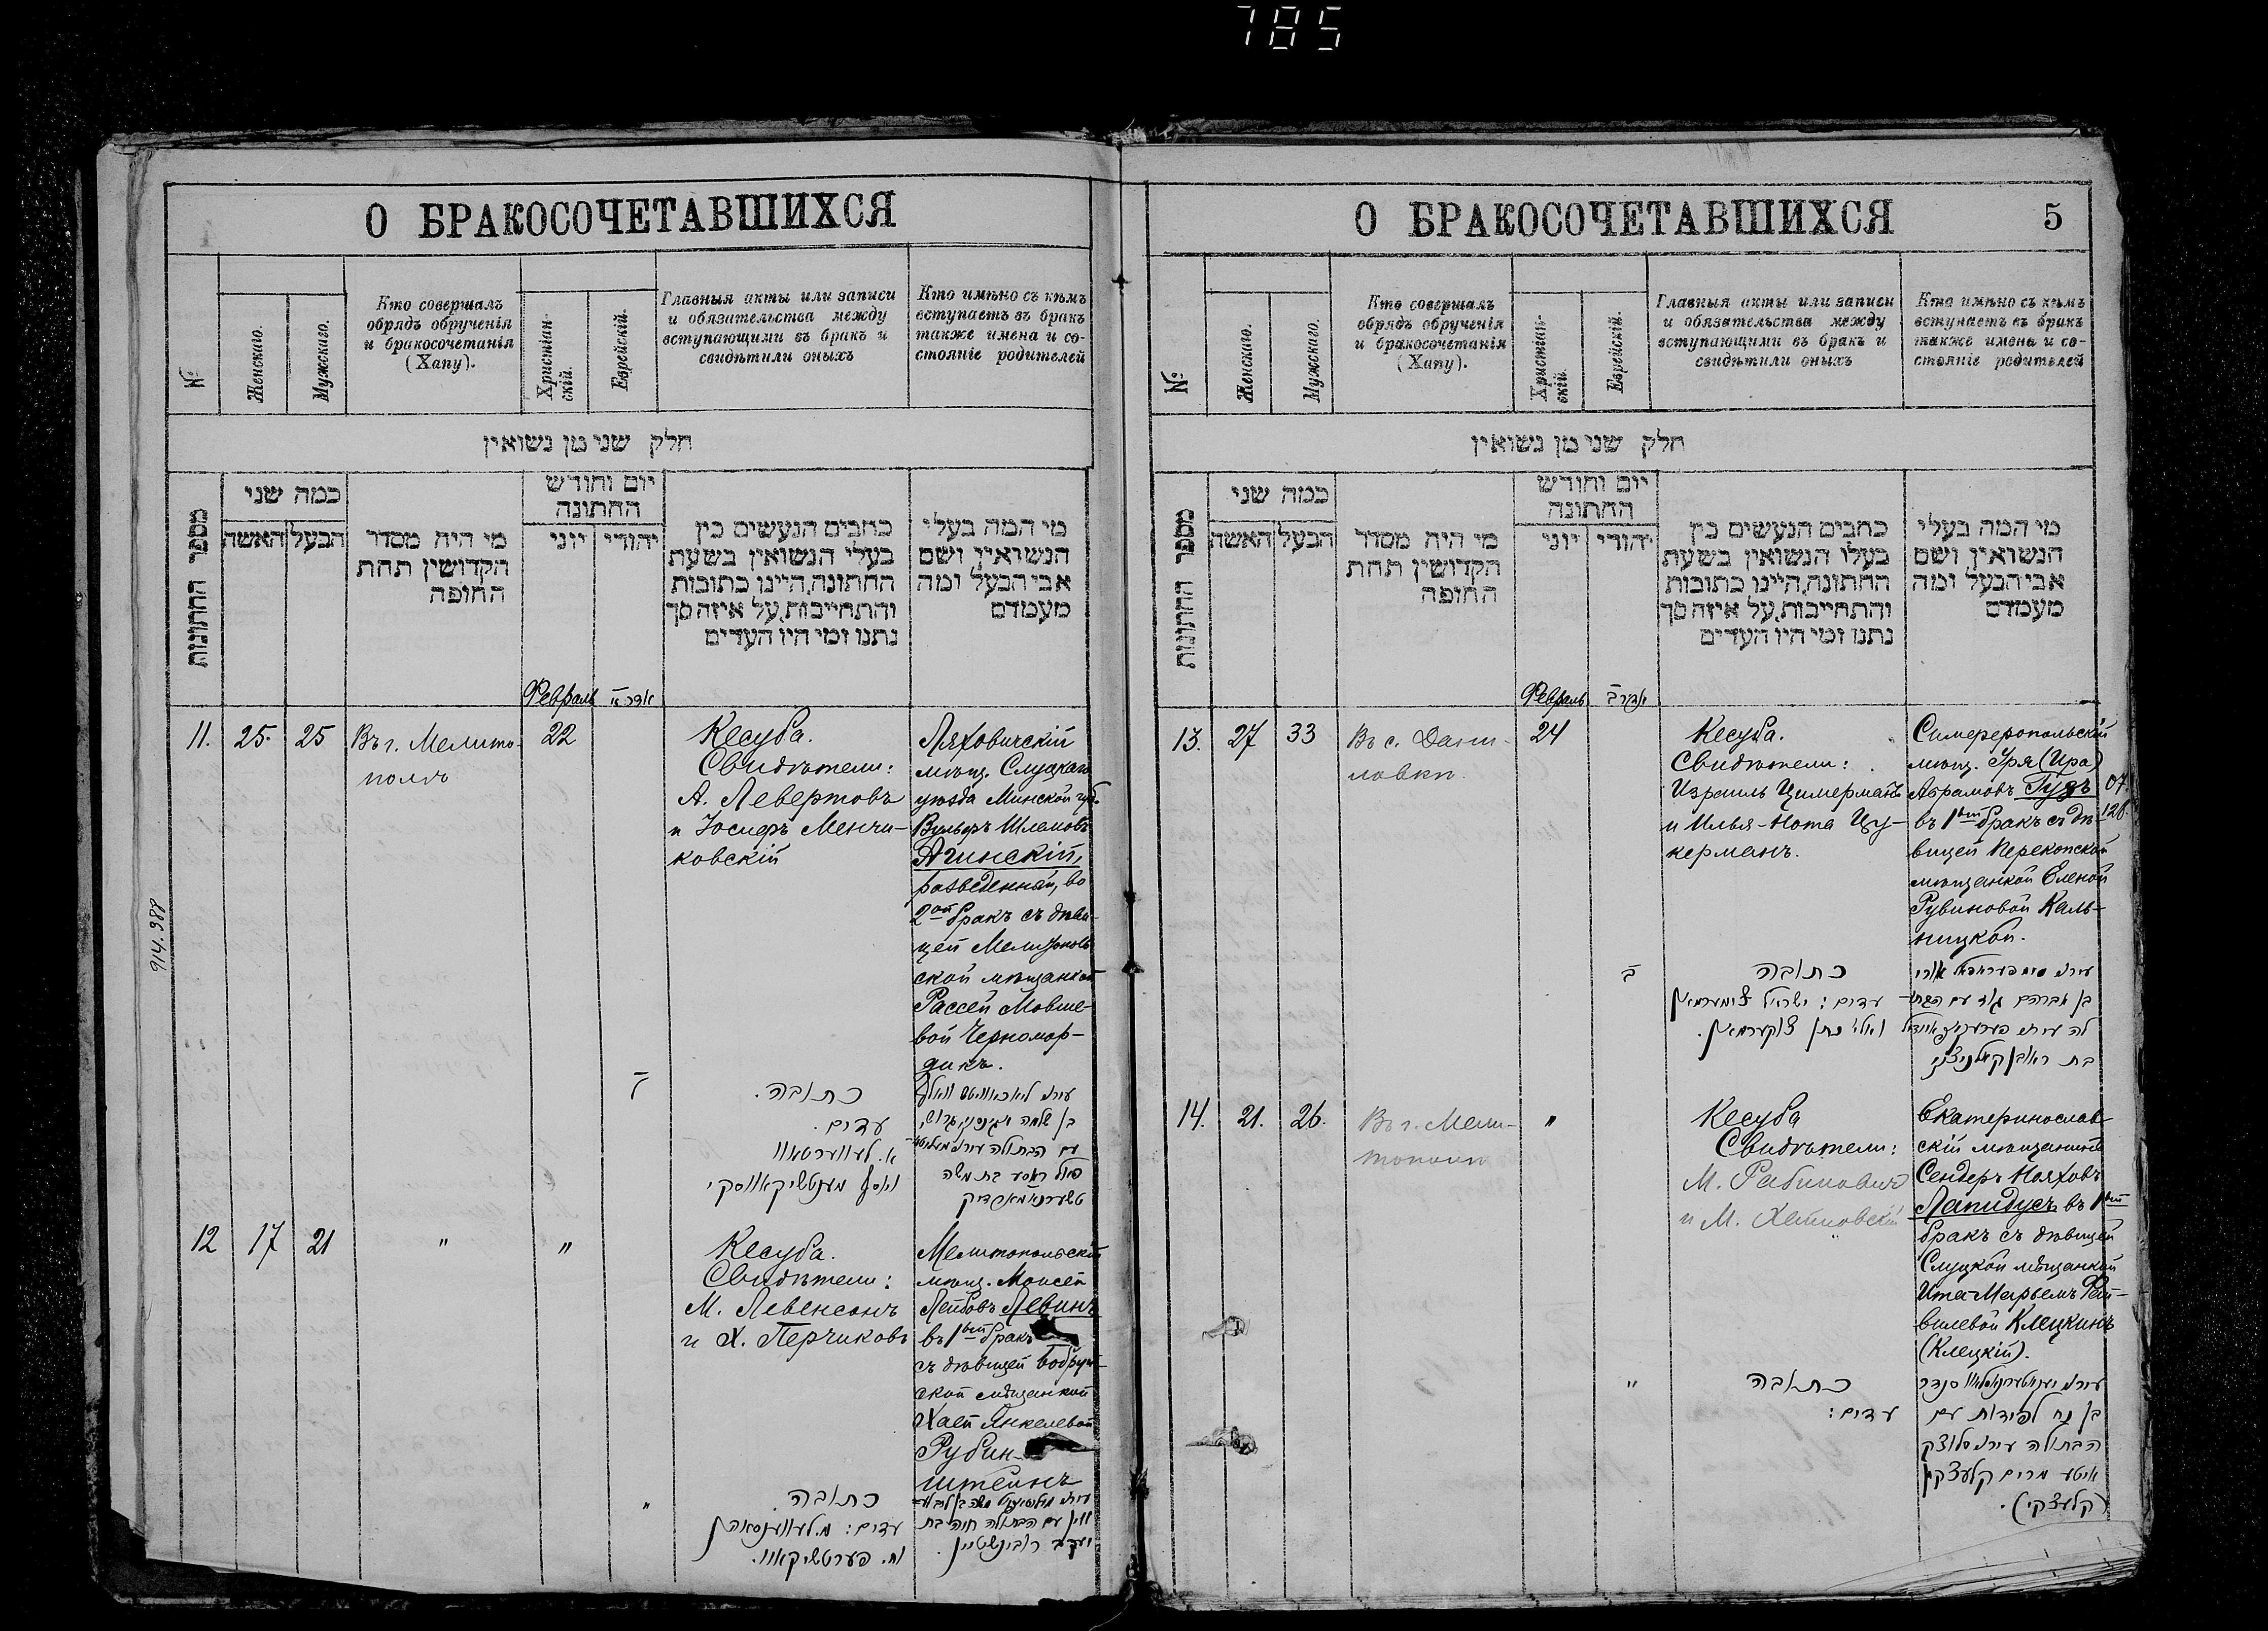 785
О БРАКОСОЧЕТАВШИХСЯ
№
Женскаго.
Мужскаго.
Кто совершалъ
обрядъ обрученія
и бракосочетанія
(Хапу).
Христіан-
скій.
Еврейскій.
Главныя акты или записи
и обязательства между
вступающими въ бракъ и
свидѣтили оныхъ
Кто имѣно съ кѣмъ
вступаетъ въ бракъ
также имена и со-
стояніе родителей
חלק שני מן נשואין
מספר החתונות
כמה שני
האשה
הבעל
מי היה מסדר
הקדושין תחת
החופה
יום וחודש
החתונה
יוני
יהודי
כתבים הנעשים בין
בעלי הנשואין בשעת
החתונה, היינו כתובות
והתחייבות, על איזה סך
נתנו ומי היו העדים
מי המה בעלי
הנשואין ושם
אבי הבעל ומה
מעמדם
Февраль
11. 25. 25 Въ г. Мелито-
полѣ
22
Кесуба.
Свидѣтели:
А. Левертовъ
и Іосифъ Менчи-
ковскій
Ляховичскій
мѣщ. Слуцкаго
уѣзда Минской губ.
Вульфъ Шлемовъ
Агинскій,
разведенный, во
2ой бракъ съ дѣви-
цей Мелитополь-
ской мѣщанкой
Рассей Мовше-
вой Черномор-
дикъ.
כתובה.
עדים.
א. לעווערטאוו
ויוסף מענטשיקאווסקי
בן שלמה
עם הבתולה
ראסע בת משה
טשערנאמארדיק
12 17 21 " "
Кесуба.
Свидѣтели:
М. Левенсонъ
и Х. Перчиковъ
Мелитопольскій
мѣщ. Моисей
Лейбовъ Левинъ
въ 1вый бракъ
съ дѣвицей Бобруй-
ской мѣщанкой
Хаей Янкелевой
Рубин-
штейнъ
"
כתובה
עדים: מ. לעווענסאהן
וח. פערטשיקאוו.
עם הבתולה חיה בת
יעקב רובינשטיין.
914.388
О БРАКОСОЧЕТАВШИХСЯ
5
№
Женскаго.
Мужскаго.
Кто совершалъ
обрядъ обрученія
и бракосочетанія
(Хапу).
Христіан-
скій.
Еврейскій.
Главныя акты или записи
и обязательства между
вступающими въ бракъ и
свидѣтили оныхъ
Кто имѣно съ кѣмъ
вступаетъ въ бракъ
также имена и со-
стояніе родителей
חלק שני מן נשואין
מספר החתונות
כמה שני
האשה
הבעל
מי היה מסדר
הקדושין תחת
החופה
יום וחודש
החתונה
יוני
יהודי
כתבים הנעשים בין
בעלי הנשואין בשעת
החתונה, היינו כתובות
והתחייבות, על איזה סך
נתנו ומי היו העדים
מי המה בעלי
הנשואין ושם
אבי הבעל ומה
מעמדם
Февраль
13. 27 33 Въ с. Дани-
ловкѣ.
24
Кесуба.
Свидѣтели:
Израиль Цимерманъ
и Илья-Нота Цу-
керманъ.
Симферопольскій
мѣщ. Уря (Ира)
Абрамовъ Гудъ
въ 1вый бракъ съ дѣ-
вицей Перекопской
мѣщанкой Еленой
Рувиновой Каль-
ницкой.
כתובה
עדים: ישראל צימערמאן
ואלי' נתן צוקערמאן.
בן אברהם גוד עם הבתו-
בת ראובן קאלניצקי
14. 21. 26. Въ г. Мели-
тополѣ
"
Кесуба
Свидѣтели:
М. Рабиновичъ
и М. Хаиновскій
Екатеринослав-
скій мѣщанинъ
Сендеръ Нояховъ
Лапидусъ въ 1вый
бракъ съ дѣвицей
Слуцкой мѣщанкой
Ита-Марьемъ Фай-
вилевой Клецкинъ
(Клецкій).
"
כתובה
עדים:
בן נח לפידות עם
הבתולה עירנ סלוצק
איטע מרים קלעצקין
(קלעצקי).